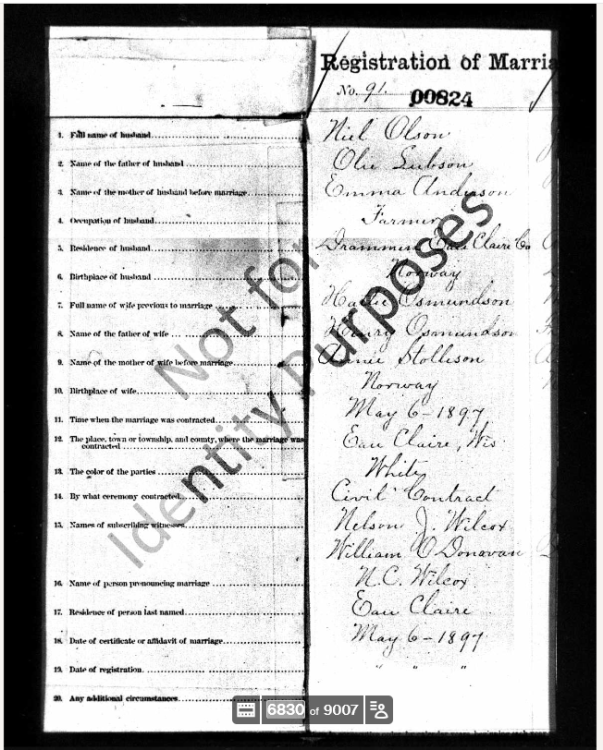 Registration of Marria
No. 91.
00824
1. Full name of husband Niel Olson
2. Name of the father of husband Ole
3. Name of the mother of husband before marriage Emma Anderson
4. Occupation of husband Farmer
5. Residence of husband Drammen Eau Claire Co
6. Birthplace of husband Norway
7. Full name of wife previous to marriage Osmundson
8. Name of the father of wife Henry Osmundson
9. Name of the mother of wife before marriage Annie
10. Birthplace of wife Norway
11. Time when the marriage was contracted May 6-1897
12. The place, town or township, and county, where the marriage was
contracted Eau Claire, Wis
13. The color of the parties White
14. By what ceremony contracted Civil Contract
15. Names of subscribing witnesses Nelson J. Wilcox
William O'Donavan
16. Name of person pronouncing marriage N.C. Wilcox
17. Residence of person last named Eau Claire
18. Date of certificate or affidavit of marriage May 6-1897
19. Date of registration. " " "
20. Any additional circumstances
Not for
Identity Purposes
6830 of 9007